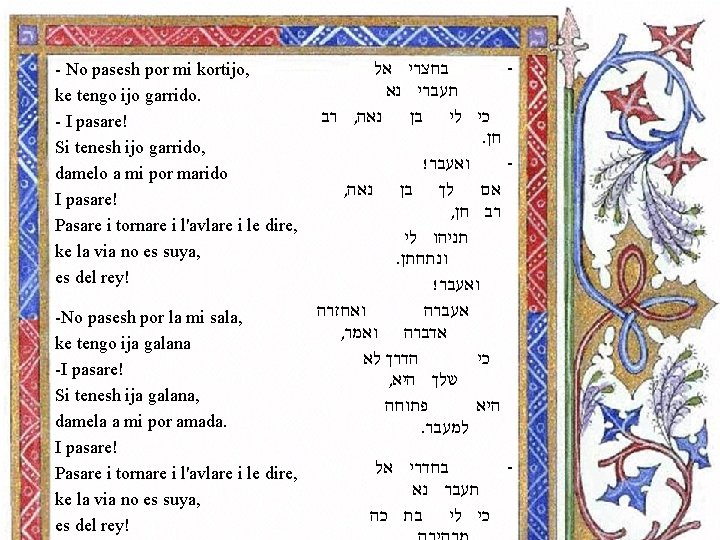 - No pasesh por mi kortijo,
ke tengo ijo garrido.
- I pasare!
Si tenesh ijo garrido,
damelo a mi por marido
I pasare!
Pasare i tornare i l'avlare i le dire,
ke la via no es suya,
es del rey!
-No pasesh por la mi sala,
ke tengo ija galana
-I pasare!
Si tenesh ija galana,
damela a mi por amada.
I pasare!
Pasare i tornare i l'avlare i le dire,
ke la via no es suya,
es del rey!
- בחצרי אל
תעברי נא
כי לי בן נאה, רב
חן.
- ואעבר!
אם לך בן נאה,
רב חן,
תניחו לי
ונתחתן.
ואעבר!
אעברה ואחזרה
אדברה ואמר,
כי הדרך לא
שלך היא,
היא פתוחה
למעבר.
- בחדרי אל
תעבר נא
כי לי בת כה